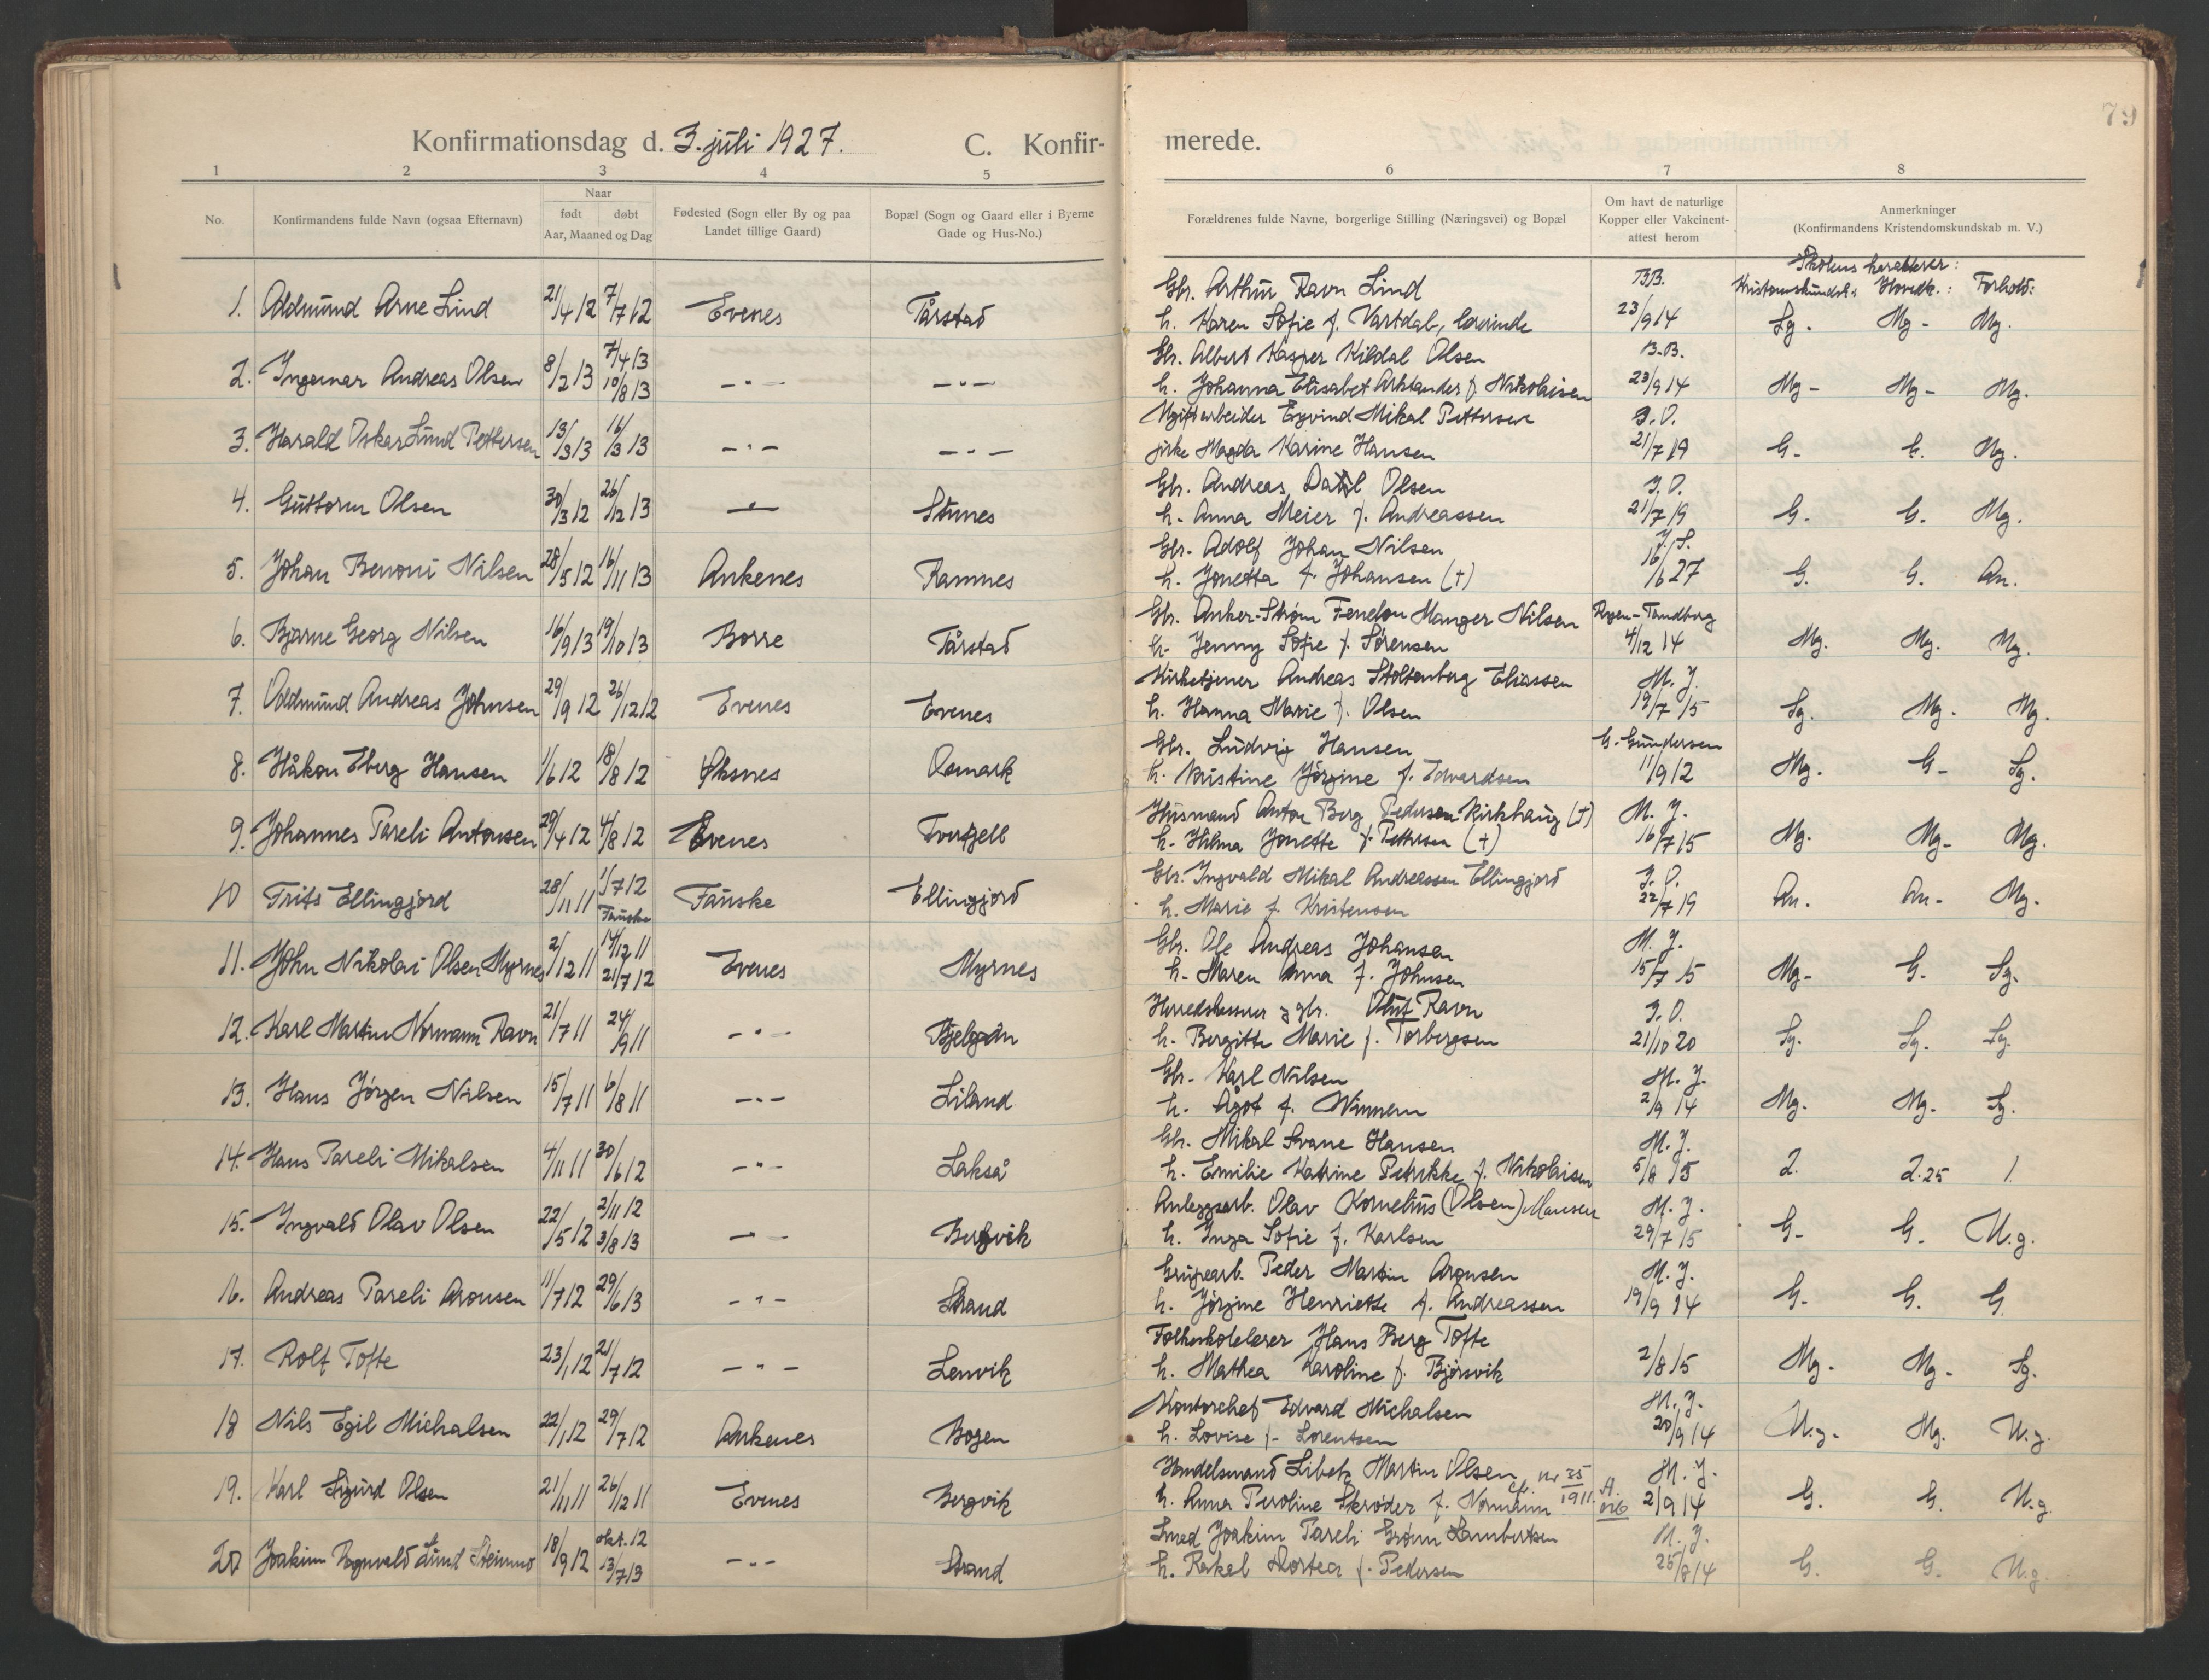 79
Konfirmationsdag d. 3. juli 1927. C. Konfir- merede.
1 2 3 4 5 6 7 8
No. Konfirmandens fulde Navn (ogsaa Efternavn) Naar født døbt Aar, Maaned og Dag Fødested (Sogn eller By og paa Landet tillige Gaard) Bopæl (Sogn og Gaard eller i Byerne Gade og Hus-No.) Forældrenes fulde Navne, borgerlige Stilling (Næringsvei) og Bopæl Om havt de naturlige Kopper eller Vakcinent- attest herom Anmerkninger (Konfirmandens Kristendomskundskab m. V.)
Skolens karakterer:
Kristomskundsk.: Hovedk.: Forhold:
Gbr. Arthur Ravn Lind B.B.
1. Oddmund Arne Lind 21/4 12 7/7 12 Evenes Tårstad h. Karen Sofie f. Vartdal, lærerinde 23/9 14 Sg. Mg- Mg.
7/4 13 Gbr. Albert Kasper Kildal Olsen B.B.
2. Ingemar Andreas Olsen 8/2 13 10/8 13 -"- -"- h. Johanna Elisabet Arktander f. Nikolaisen 23/9 14 Mg- Mg- Mg.
Ugift arbeider Eyvind Mikal Pettersen J.O.
3. Harald Oskar Lund Pettersen 13/3 13 16/3 13 -"- -"- pike Magda Karine Hansen 21/7 19 G- G. Mg.
Gbr. Andreas Dahl Olsen J.O.
4. Guttorm Olsen 30/3 12 26/12 13 -"- Stunes h. Anna Meier f. Andreassen 21/7 19 G. G. Mg.
Gbr. Adolf Johan Nilsen J.S.
5. Johan Benoni Nilsen 28/5 12 16/11 13 Ankenes Ramnes h. Jonetta f. Johansen (+) 16/6 27 G. G. An.
Gbr. Anker-Strøm Fenelon Manger Nilsen Roen-Tandberg
6. Bjarne Georg Nilsen 16/9 13 19/10 13 Borre Tårstad h. Jenny Sofie f. Sørensen 4/12 14 Mg. Mg. Mg.
Kirketjener Andreas Stoltenberg Eliassen M.J.
7. Oddmund Andreas Johnsen 29/9 12 26/12 12 Evenes Evenes h. Hanna Marie f. Olsen 19/7 15 Sg. Mg. Mg.
Gbr. Ludvig Hansen G. Gundersen
8. Håkon Eberg Hansen 1/6 12 18/8 12 Øksnes Osmark h. Kristine Jørgine f. Edvardsen 11/9 12 Mg. G- Sg.
Husmand Anton Berg Pedersen Kirkhaug (+) M.J.
9. Johannes Pareli Antonsen 29/4 12 4/8 12 Evenes Tverfjell h. Hilma Jonette f. Pettersen (+) 16/7 15 Mg. Mg- Mg.
Gbr. Ingvald Mikal Andreassen Ellingjord J.O.
10 Frits Ellingjord 28/11 11 1/7 12 Fauske Fauske Ellingjord h. Marie f. Kristensen 22/7 19 An. An- Mg.
14/12 11 Gbr. Ole Andreas Johansen M.J.
11. John Nikolai Olsen Myrnes 2/12 11 21/7 12 Evenes Myrnes h. Maren Anna f. Johnsen 15/7 15 Mg- G. Sg.
Herredskasserer og gbr. Oluf Ravn J.O.
12. Karl Martin Normann Ravn 21/7 11 24/9 11 -"- h. Bergitte Marie f. Torbergsen 21/10 20 Sg. Sg. Sg.
Gbr. Karl Nilsen M.J.
13. Hans Jørgen Nilsen 15/7 11 6/8 11 -"- Liland h. Ågot f. Winnem 2/9 14 Mg. Mg. Sg.
Gbr. Mikal Svane Hansen M.J.
14. Hans Pareli Mikalsen 4/11 11 30/6 12 -"- Lakså h. Emilie Katrine Petrikke f. Nikolaisen 5/8 15 2. 2.25 1.
2/11 12 Anleggsarb. Olav Kornelius (Olsen) Hansen M.J.
15. Ingvald Olav Olsen 22/5 12 3/8 13 -"- Bergvik h. Inga Sofie f. Karlsen 29/7 15 G- G. M.g.
Grupearb. Peder Martin Aronsen M.J.
16. Andreas Pareli Aronsen 11/7 12 29/6 13 -"- Strand h. Jørgine Henriette f. Andreassen 19/9 14 G. G. G.
Folkeskolelærer Hans Berg Tofte
17. Rolf Tofte 23/1 12 21/7 12 -"- Lenvik h. Mathea Karoline f. Bjørsvik 2/8 15 Mg. Mg- Sg.
Kontorchef Edvard Michalsen M.J.
18 Nils Egil Michalsen 22/1 12 29/7 12 Ankenes Bogen h. Lovise f. Lorentsen 20/9 14 M.g. Mg. M.g.
Handelsmand Libek Martin Olsen cfr. nr 35 1911. M.J.
19. Karl Sigurd Olsen 21/11 11 26/12 11 Evenes Bergvik h. Anna Peroline Skrøder f. Normann 2/9 14 G. G. M.g.
okt. 12 Smed Joakim Pareli Grønn Lambertsen M.J.
20 Joakim Ragnvald Lund Steinmo 18/9 12 13/7 13 -"- Strand h. Rakel Dortea f. Pedersen 25/8 14 G. G. M.g.